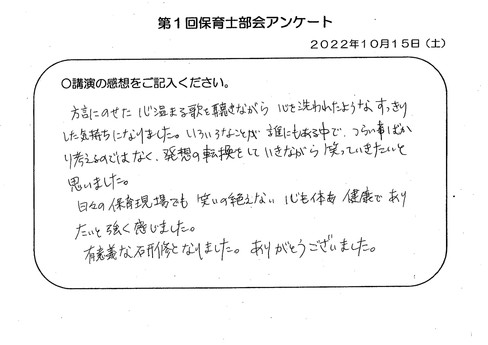 第１回保育士部会アンケート
２０２２年１０月１５日（土）
〇講演の感想をご記入ください。
方言にのせた 心温まる歌を聴きながら 心を洗われたような、すっきり
した気持ちになりました。いろいろなことが 誰にもある中で、つらい事ばか
り考えるのではなく、発想の転換をしていきながら 笑っていきたいと
思いました。
日々の保育現場でも 笑いの絶えない 心も体も 健康であり
たいと強く感じました。
有意義な研修となりました。ありがとうございました。